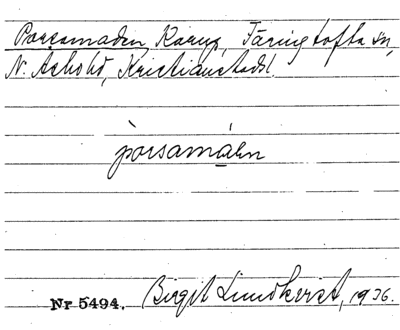 Porsamaden Karup, Färingtofta sn,
N. Åsbohd, Kristianstadsl.
porsamáen
Nr 5494. Birgit Lindkvist, 1936.